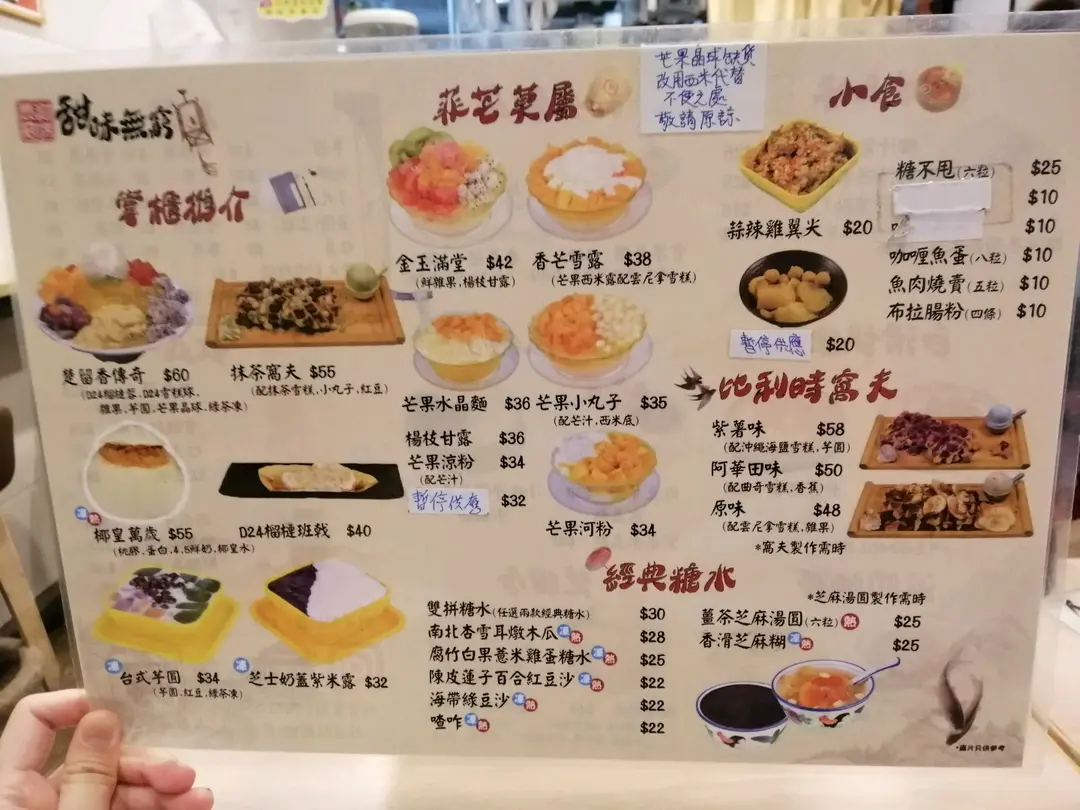 甜味無窮
掌櫃推介
楚留香傳奇 $60
(D24榴槤蓉.D24雪糕球.
雜果.芋圓.芒果晶球.綠茶凍)
抹茶窩夫 $55
(配抹茶雪糕.小丸子.紅豆)
凍 熱
椰皇萬歲 $55
(桃膠.蛋白.4.5鮮奶.椰皇水)
D24榴槤班戟 $40
凍
台式芋圓 $34
(芋圓.紅豆.綠茶凍)
凍
芝士奶蓋紫米露 $32
非芒莫屬
芒果晶球缺貨
改用西米代替
不便之處
敬請原諒
金玉滿堂 $42
(鮮雜果.楊枝甘露)
香芒雪露 $38
(芒果西米露配雲尼拿雪糕)
芒果水晶麵 $36
芒果小丸子 $35
(配芒汁.西米底)
楊枝甘露 $36
芒果涼粉 $34
(配芒汁)
暫停供應 $32
芒果河粉 $34
小食
蒜辣雞翼尖 $20
暫停供應 $20
糖不甩(六粒) $25
$10
$10
咖喱魚蛋(八粒) $10
魚肉燒賣(五粒) $10
布拉腸粉(四條) $10
比利時窩夫
紫薯味 $58
(配沖繩海鹽雪糕.芋圓)
阿華田味 $50
(配曲奇雪糕.香蕉)
原味 $48
(配雲尼拿雪糕.雜果)
*窩夫製作需時
經典糖水
雙拼糖水(任選兩款經典糖水) $30
南北杏雪耳燉木瓜 凍 熱 $28
腐竹白果薏米雞蛋糖水 凍 熱 $25
陳皮蓮子百合紅豆沙 凍 熱 $22
海帶綠豆沙 凍 熱 $22
喳咋 凍 熱 $22
*芝麻湯圓製作需時
薑茶芝麻湯圓(六粒) 熱 $25
香滑芝麻糊 凍 熱 $25
*圖片只供參考